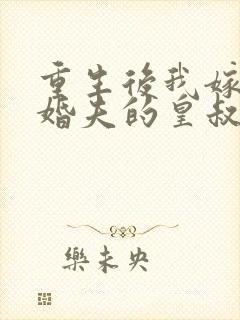 重生後我嫁
婚夫的皇叔
樂未央